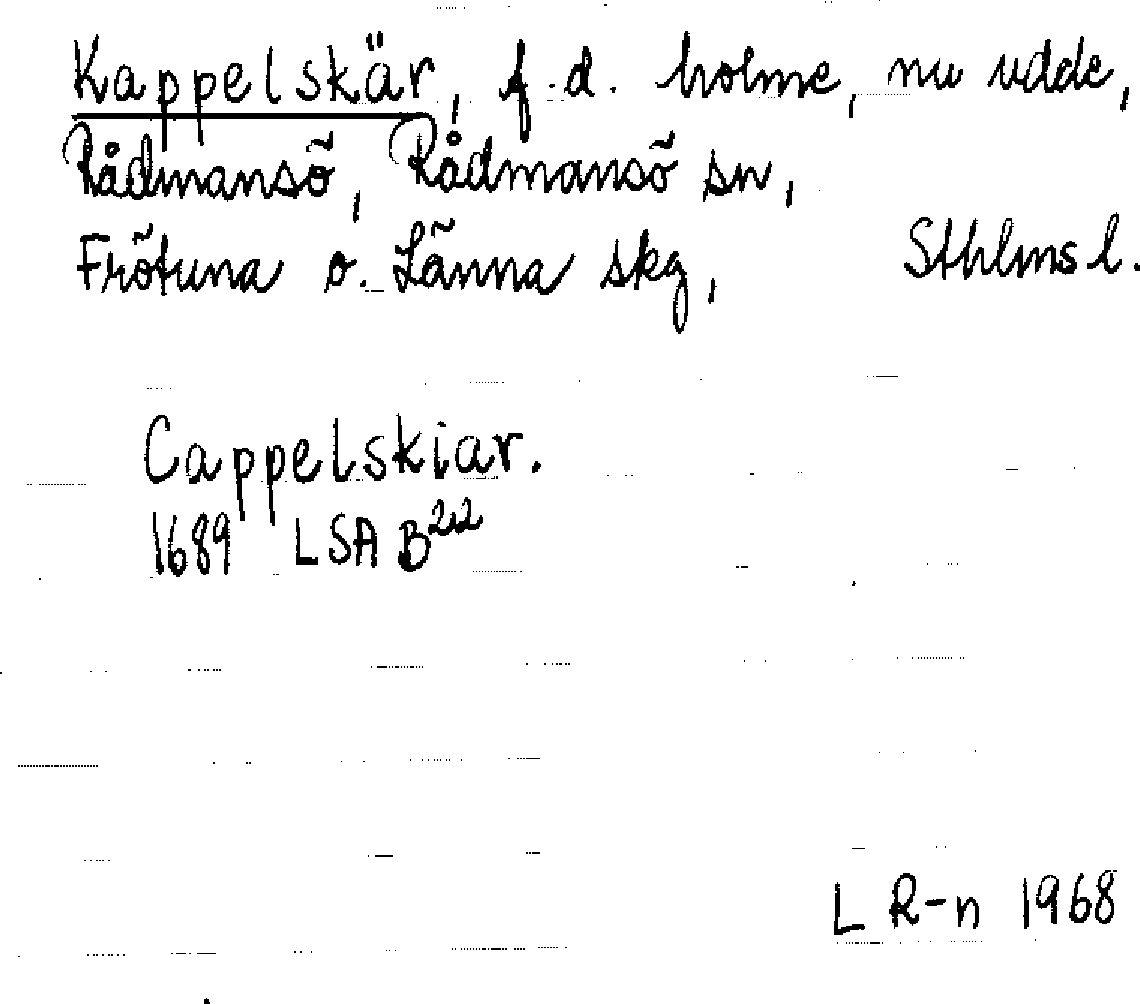 Kappelskär, f.d. holme, nu udde,
Rådmansö, Rådmansö sn,
Frötuna o. Länna skg, Sthlms l.
Cappelskiar.
1689 LSA B²²
L R-n 1968